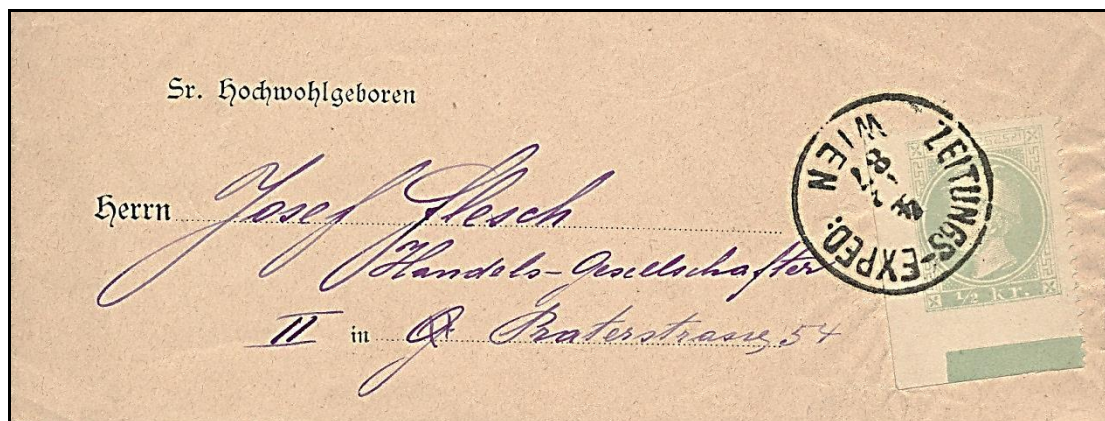 Sr. Hochwohlgeboren
Herrn Josef Flesch
Handels-Gesellschafter
II in Praterstrasse, 54
ZEITUNGS-EXPED: WIEN
1/2 Kr.